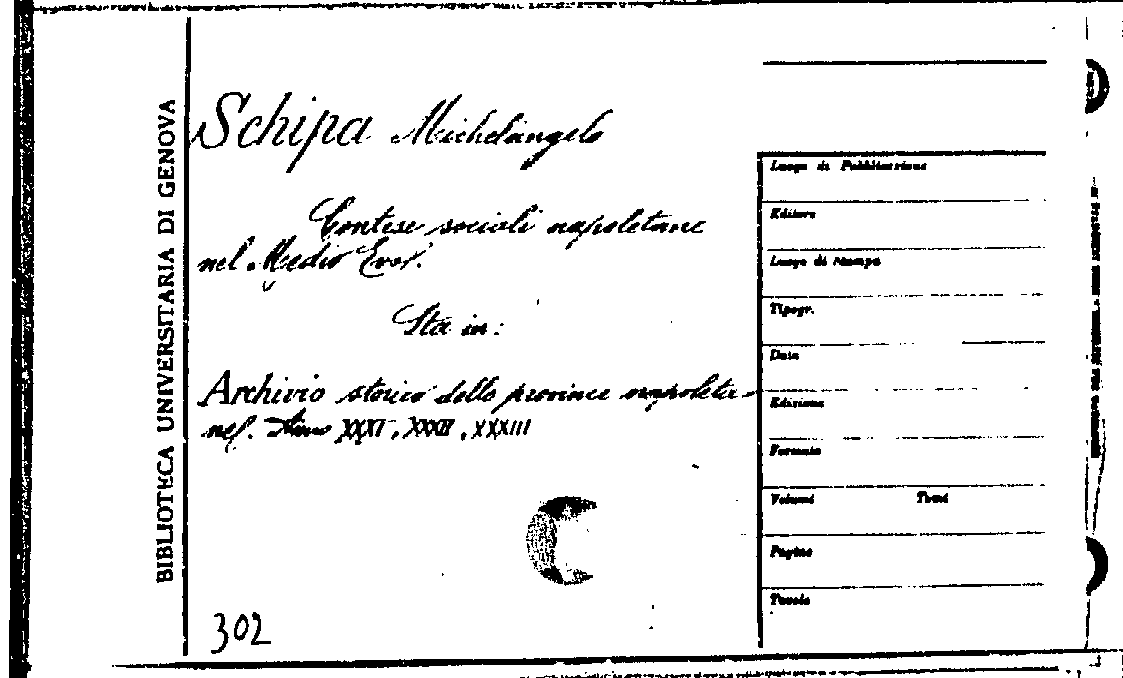 BIBLIOTECA UNIVERSITARIA DI GENOVA
Schipa Michelangelo
Contese sociali napoletane
nel Medio Evo.
Sta in:
Archivio storico delle province napoleta-
ne. Anno XXXI, XXXII, XXXIII
302
Luogo di Pubblicazione
Editore
Luogo di Stampa
Tipogr.
Data
Edizione
Formato
Volumi Tomi
Pagine
Tavole